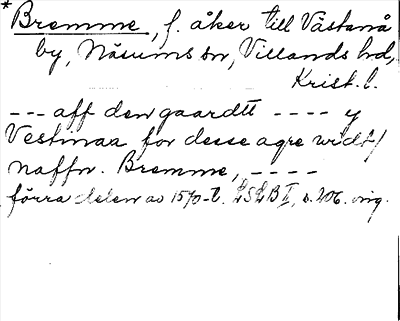 * Bremme, f. åker till Västanå
by, Näsums sn, Villands hd,
Krist. l.
--- aff den gaardtt ---- y
Vestinaa for desse agre widt/
naffn. Bremme, ----
förra delen av 1570-t. LSLB I, s. 206. orig.